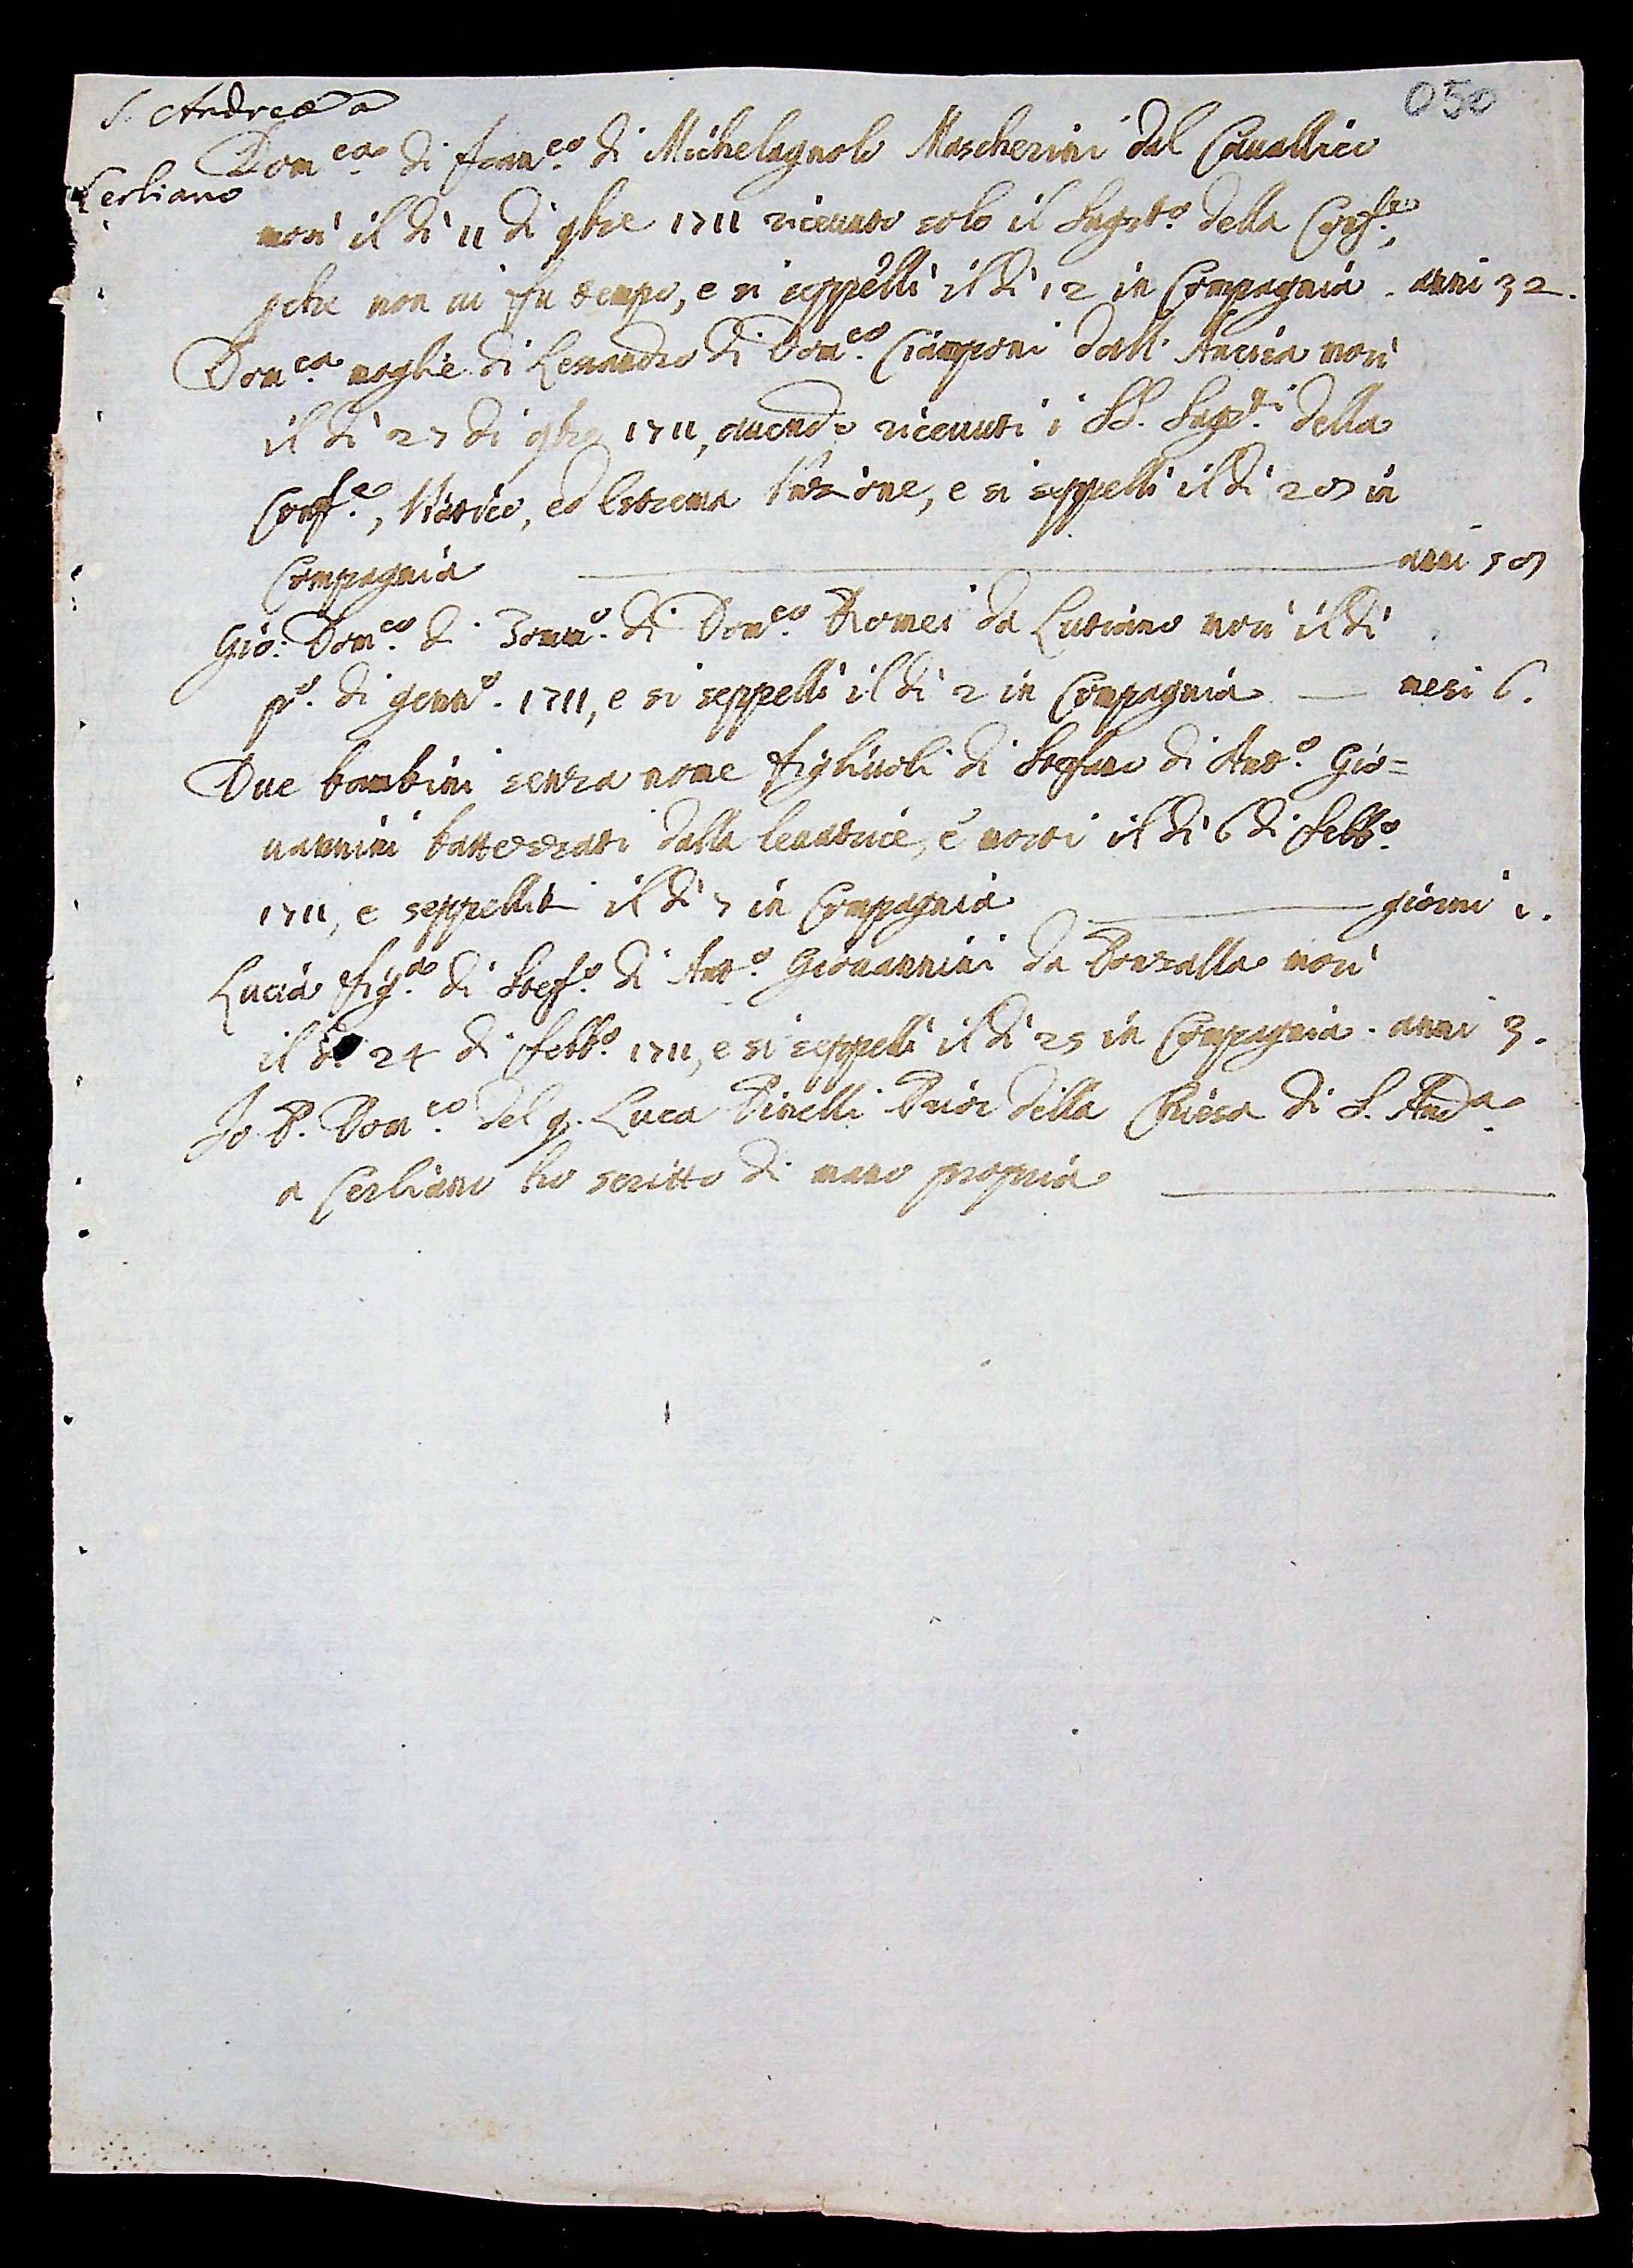 050
S. Andrea a
Cerliano
Dom.ca di Fran.co di Michelagnolo Mascherini dal Cavallico
morì il dì 11 di 9bre 1711 ricevuto solo il Sagrto. della Conf.e,
pche non vi fu tempo, e si seppellì il dì 12 in Compagnia. anni 32.
Dom.ca moglie di Lesandro di Dom.co Ciamponi dall' Ancisa morì
il dì 27 di 9bre 1711, avendo ricevuti i SS. Sagr.ti della
Conf.e, Viatico, ed Estrema Unzione, e si seppellì il dì 28 in
Compagnia anni 58
Gio: Dom.co di Tomm.o di Dom.co Romei da Lutiano morì il dì
p.o di Genn.o 1711, e si seppellì il dì 2 in Compagnia mesi 6.
Due bambini senza nome figliuoli di Stefano di Ant.o Gio=
vannini battezzati dalla levatrice, e morti il dì 6 di Febb.o
1711, e seppelliti il dì 7 in Compagnia giorni 1.
Lucia fig.a di Stef.o di Ant.o Giovannini da Ronzalla morì
il dì 24 di Febb.o 1711, e si seppellì il dì 25 in Compagnia. anni 3.
Io P. Dom.co del q. Luca Pinelli Prior della Chiesa di S. And.a
a Cerliano ho scritto di mano propria